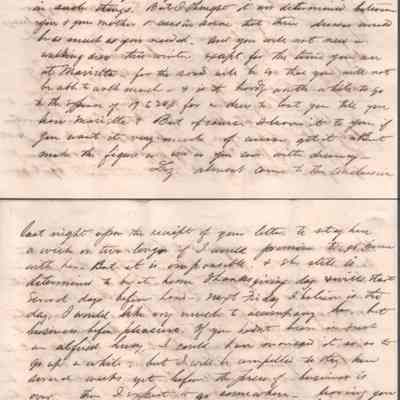 in such things. But I thought it was determined between
you & your mother & cousin that this dress would
be as much as you needed. And you will not need a
walking dress this winter except for the time you are
at Marietta - for the roads will be so that you will not
be able to walk much - & is it hardly worth while to go
to the expense of 17 or 20$ for a dress to last you till you
leave Marietta & But of course I leave it to you if
you want it very much of course get it & but
make the figure as low as you can with decency -
Liz almost came to the conclusion
last night upon the receipt of your letter to stay here
a week or two longer if I would promise to go home
with her. But it is impossible & she still is
determined to be at home Thanksgiving day & will start
several days before hand. next Friday I believe is the
day. I would like very much to accompany her but
business before pleasure. If you hadn't been in such
an awful hurry I could have managed it so as to
go up a while. but I will be compelled to stay here
several weeks yet before the press of business is
over. then I expect to go somewhere - Loving you